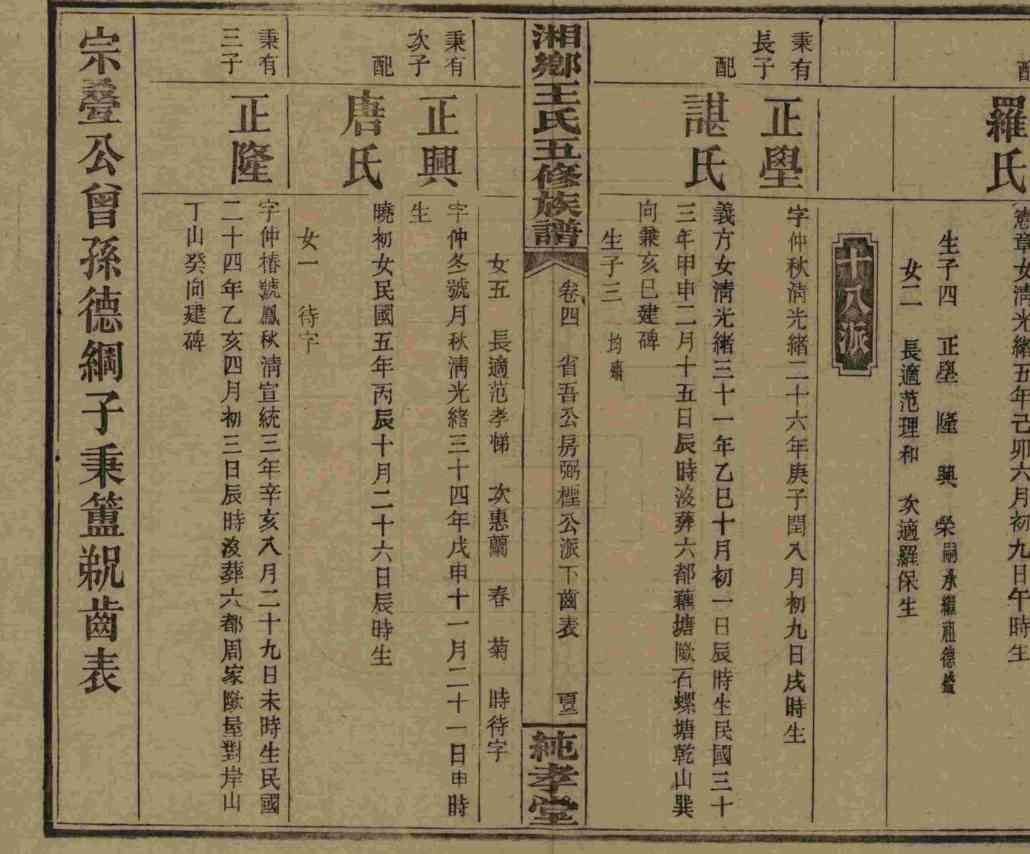 配
羅氏
憲章女淸光緖五年己卯六月初九日午時生
生子四 正壆 隆 興 榮嗣永繼祖德鑑
女二 長適范理和 次適羅保生
十八派
秉有
長子
正壆
字仲秋淸光緖二十六年庚子閏八月初九日戌時生
配
諶氏
義方女淸光緖三十一年乙巳十月初一日辰時生民國三十
三年甲申二月十五日辰時沒葬六都藕塘隞石螺塘乾山巽
向兼亥巳建碑
生子三 均殤
女五 長適范孝悌 次惠蘭 春 菊 時待字
湘鄉王氏五修族譜
卷四 省吾公房弼檉公派下齒表
純孝堂
秉有
次子
正興
字仲冬號月秋淸光緖三十四年戊申十一月二十一日申時
生
配
唐氏
曉初女民國五年丙辰十月二十六日辰時生
女一 待字
秉有
三子
正隆
字仲椿號鳳秋淸宣統三年辛亥八月二十九日未時生民國
二十四年乙亥四月初三日辰時沒葬六都周家隞屋對岸山
丁山癸向建碑
宗臺公曾孫德綱子秉簠覡齒表